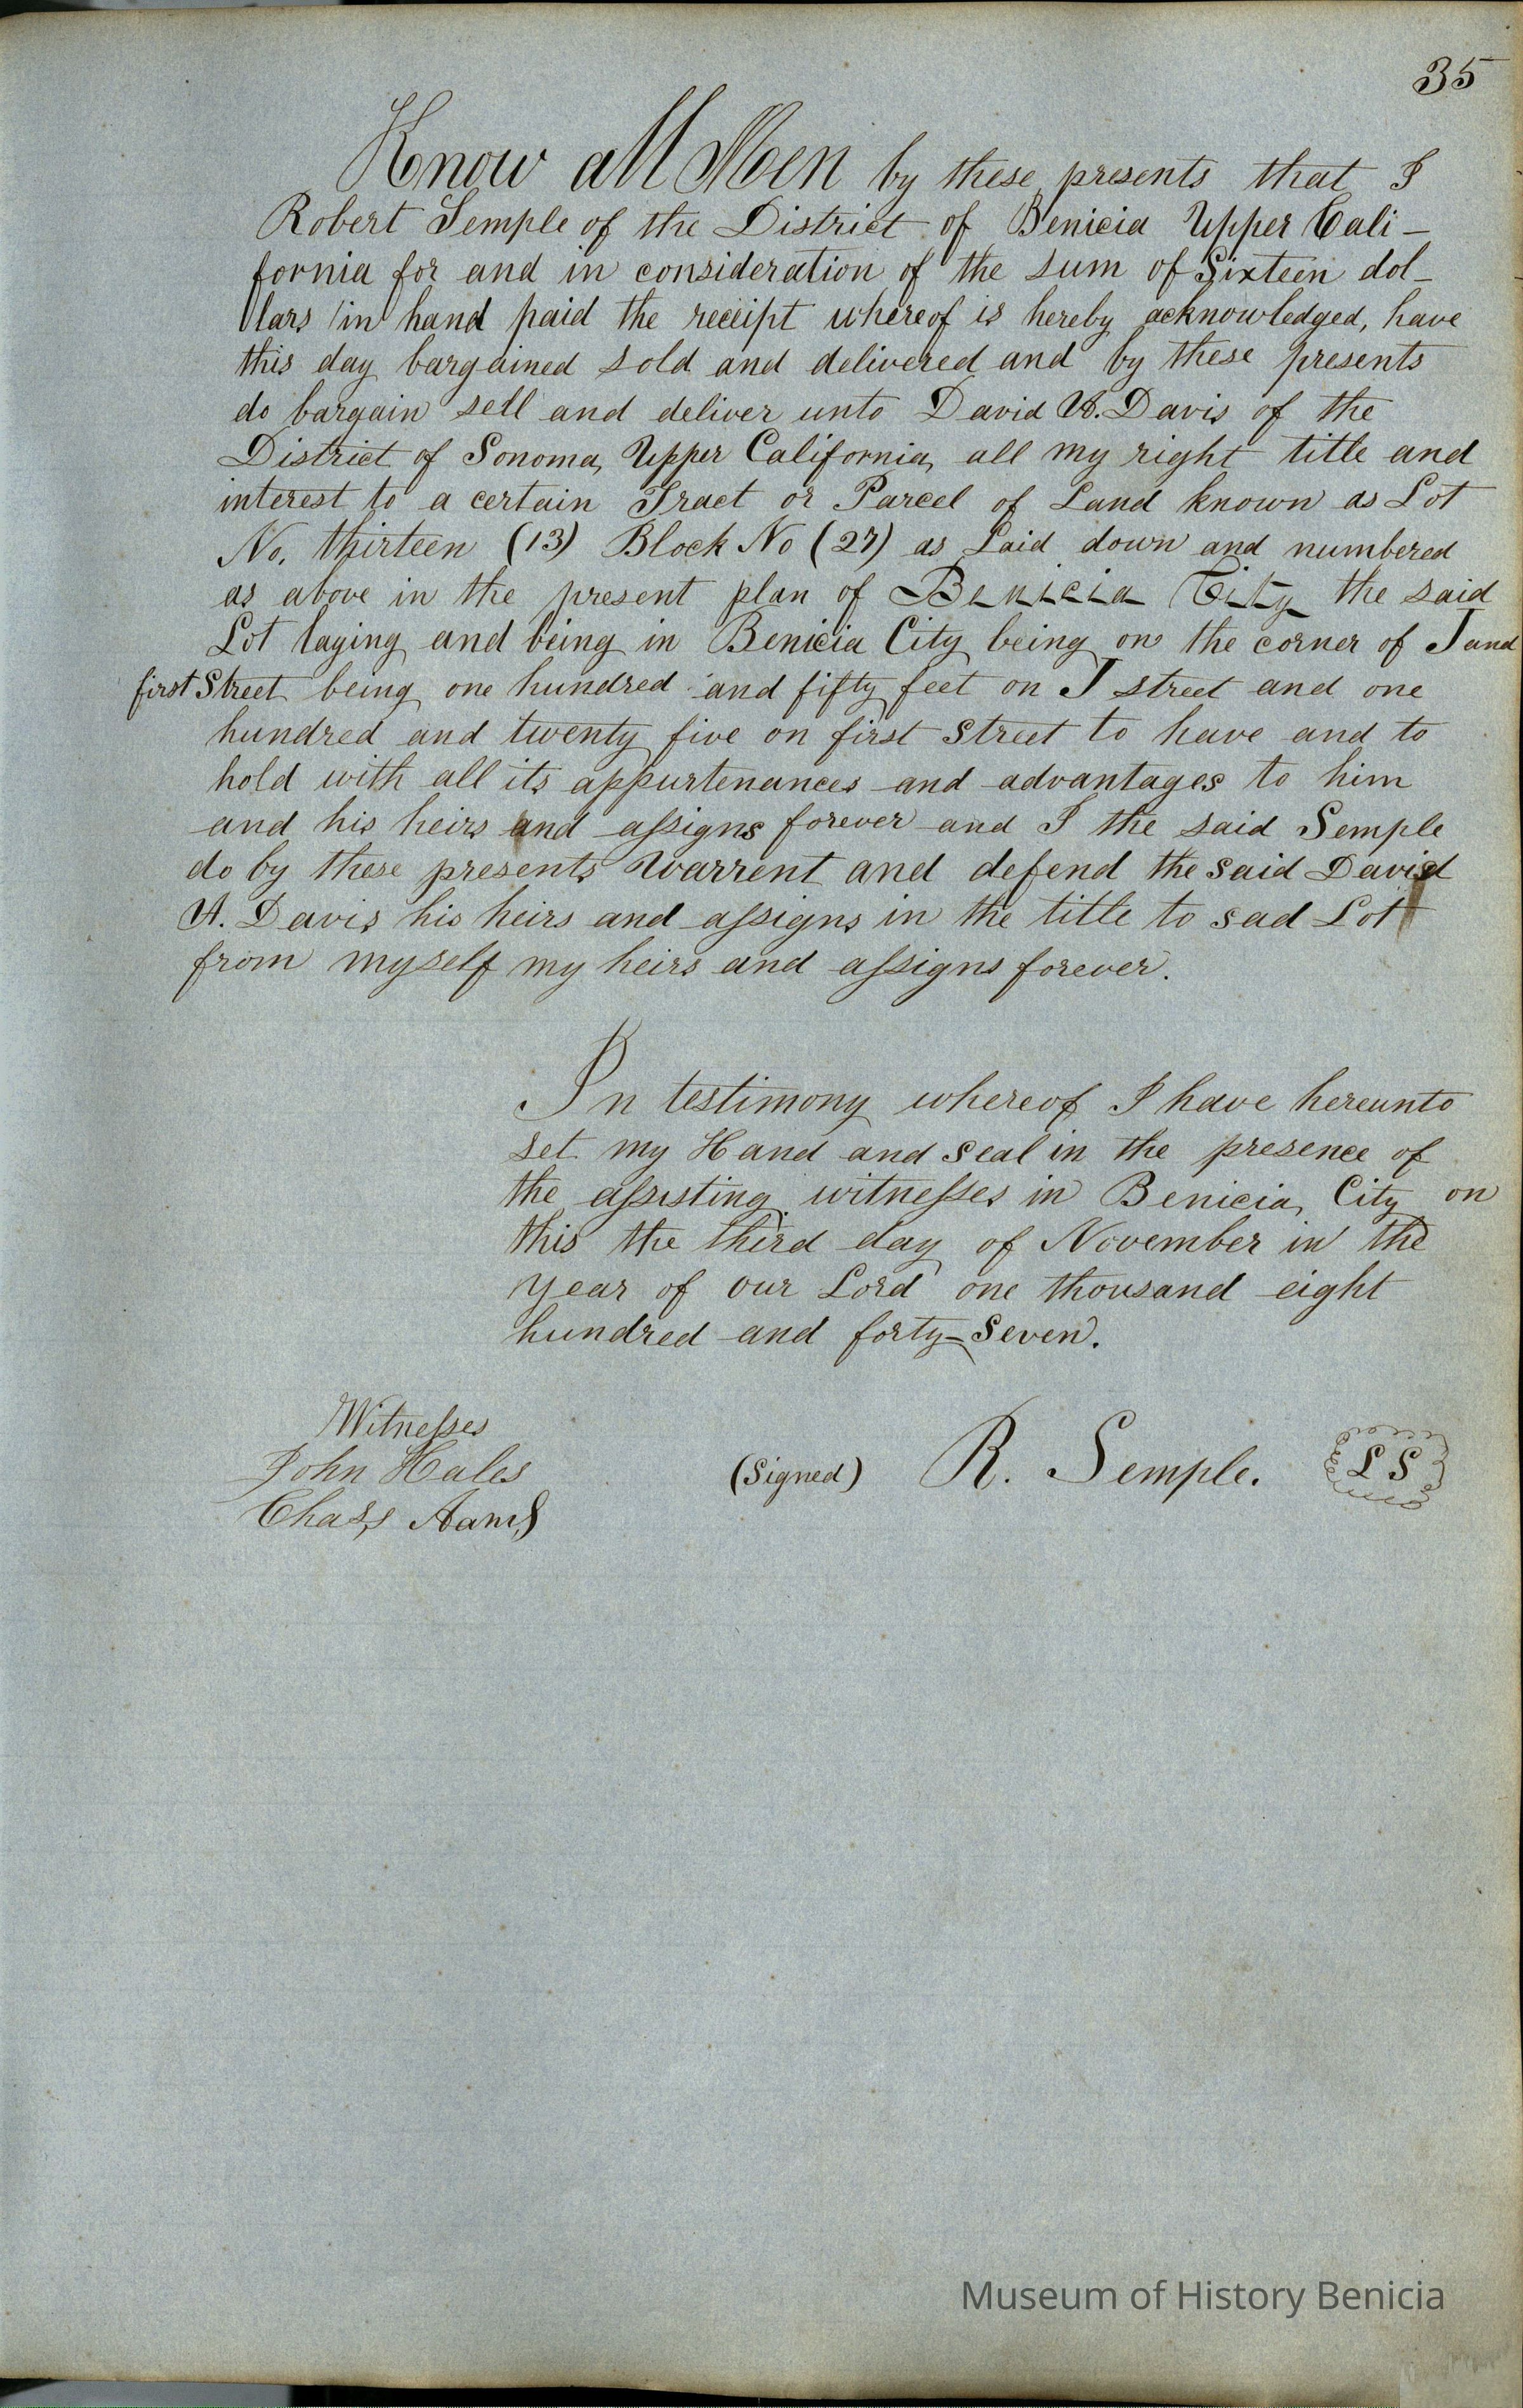 35
Know all Men by these presents that I
Robert Semple of the District of Benicia Upper Cali-
fornia for and in consideration of the sum of Sixteen dol-
lars in hand paid the receipt whereof is hereby acknowledged, have
this day bargained sold and delivered and by these presents
do bargain sell and deliver unto David A. Davis of the
District of Sonoma, Upper California, all my right title and
interest to a certain Tract or Parcel of Land known as Lot
No. thirteen (13) Block No (27) as Laid down and numbered
as above in the present plan of Benicia City the said
Lot laying and being in Benicia City being on the corner of J and
first Street being one hundred and fifty feet on J street and one
hundred and twenty five on first Street to have and to
hold with all its appurtenances and advantages to him
and his heirs and assigns forever and I the said Semple
do by these presents Warrent and defend the said David
A. Davis his heirs and assigns in the title to sad Lot
from myself my heirs and assigns forever.
In testimony whereof I have hereunto
set my Hand and seal in the presence of
the assisting witnesses in Benicia, City on
this the third day of November in the
year of our Lord one thousand eight
hundred and forty-Seven.
Witnesses
John Hales
(Signed) R. Semple. L S
Chass
Museum of History Benicia